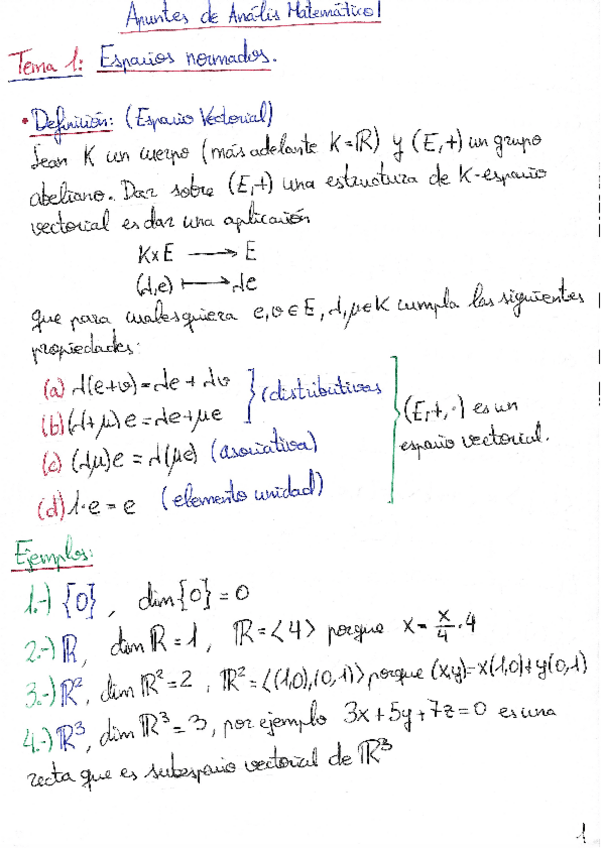 Apuntes de Análisis Matemático I
Tema 1: Espacios normados.
• Definición: (Espacio Vectorial)
Sean K un cuerpo (más adelante K=ℝ) y (E,+) un grupo
abeliano. Dar sobre (E,+) una estructura de K-espacio
vectorial es dar una aplicación
K×E ⟶ E
(λ,e) ⟼ λe
que para cualesquiera e,v ∈ E, λ,μ ∈ K cumpla las siguientes
propiedades:
(a) λ(e+v)=λe+λv } (distributivas
(b) (λ+μ)e=λe+μe
(c) (λμ)e=λ(μe) (asociativa)
(d) 1·e=e (elemento unidad)
} (E,+,·) es un
espacio vectorial.
Ejemplos:
1.-) {0}, dim{0}=0
2.-) ℝ, dim ℝ=1, ℝ=<4> porque x=x/4·4
3.-) ℝ², dim ℝ²=2, ℝ²=<(1,0),(0,1)> porque (x,y)=x(1,0)+y(0,1)
4.-) ℝ³, dim ℝ³=3, por ejemplo 3x+5y+7z=0 es una
recta que es subespacio vectorial de ℝ³
1